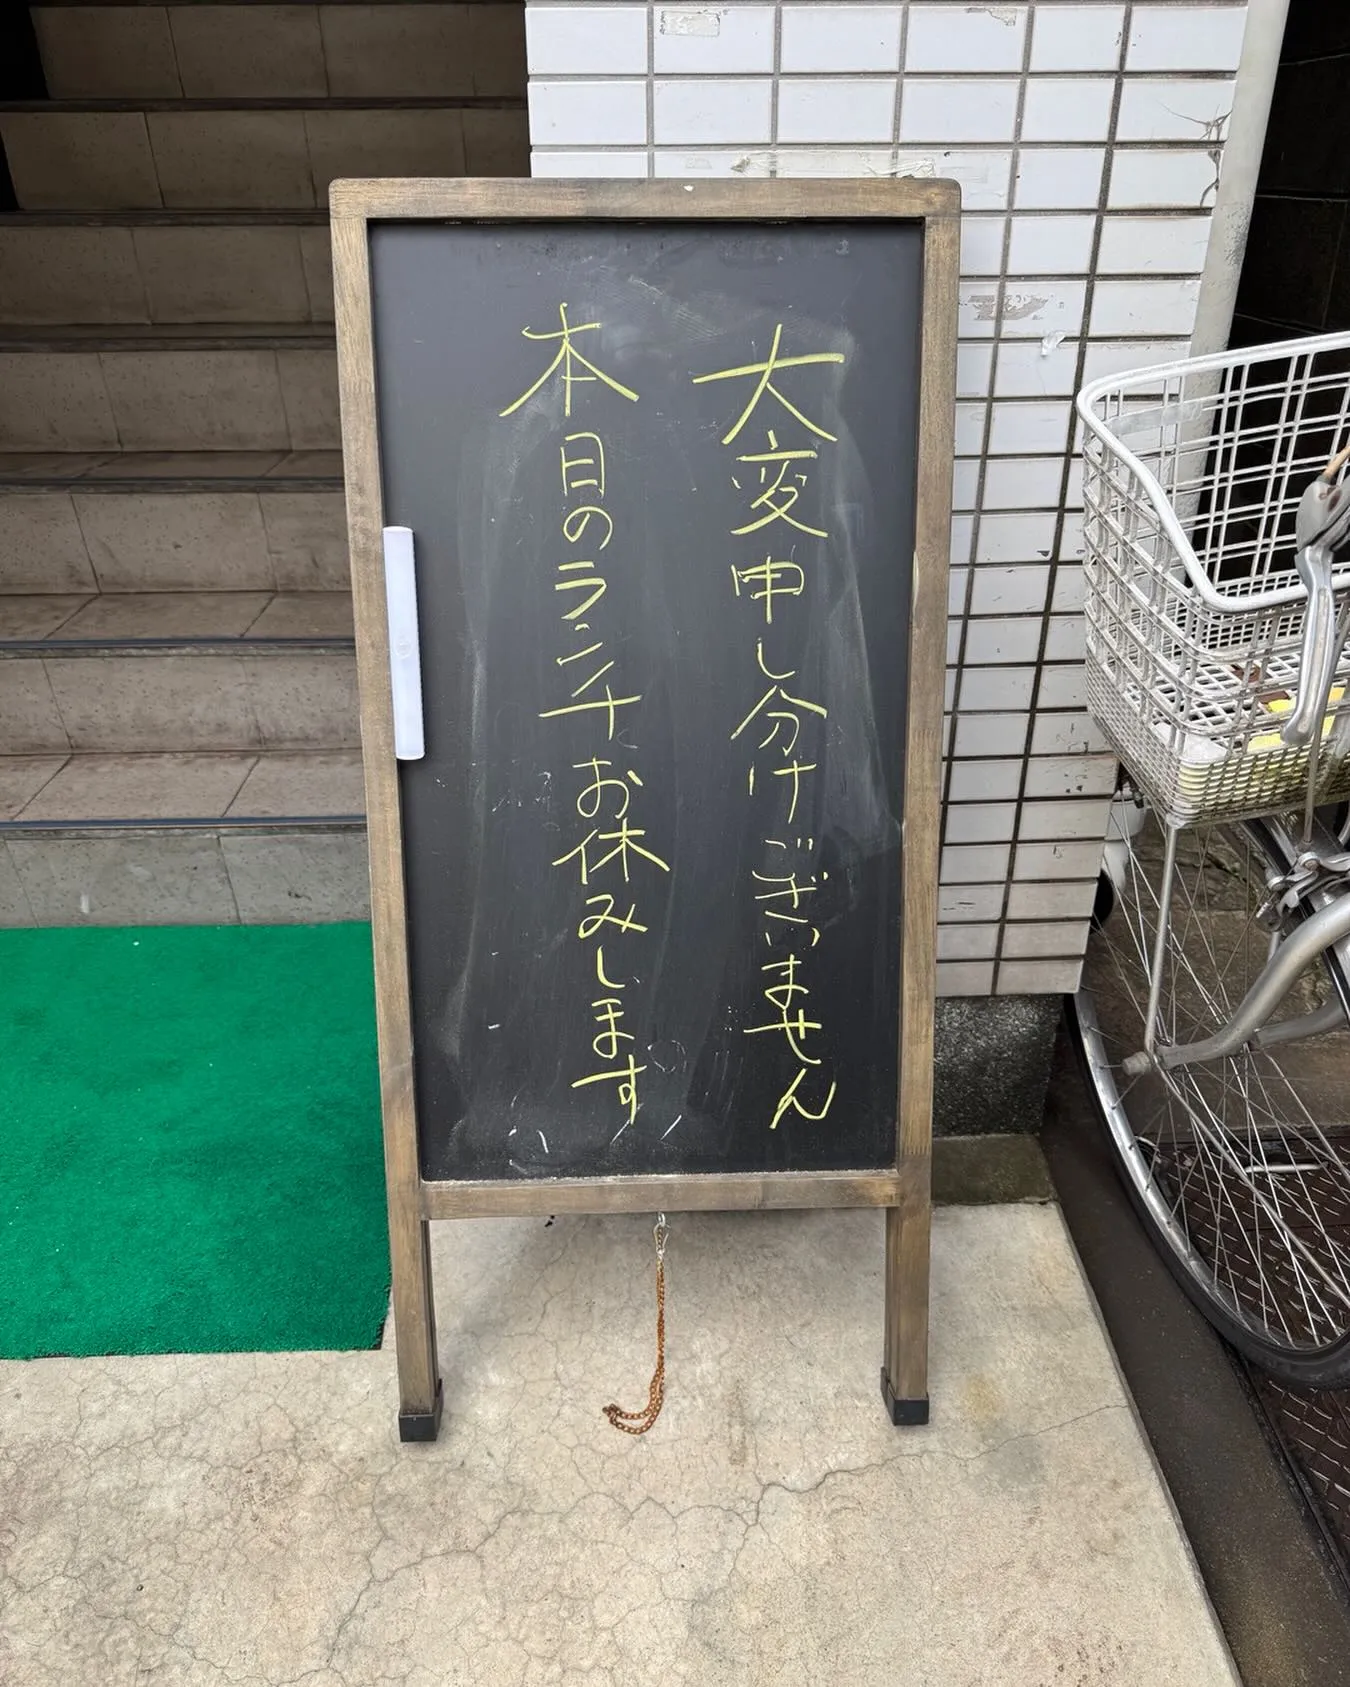 大変申し分けございません
本日のランチお休みします